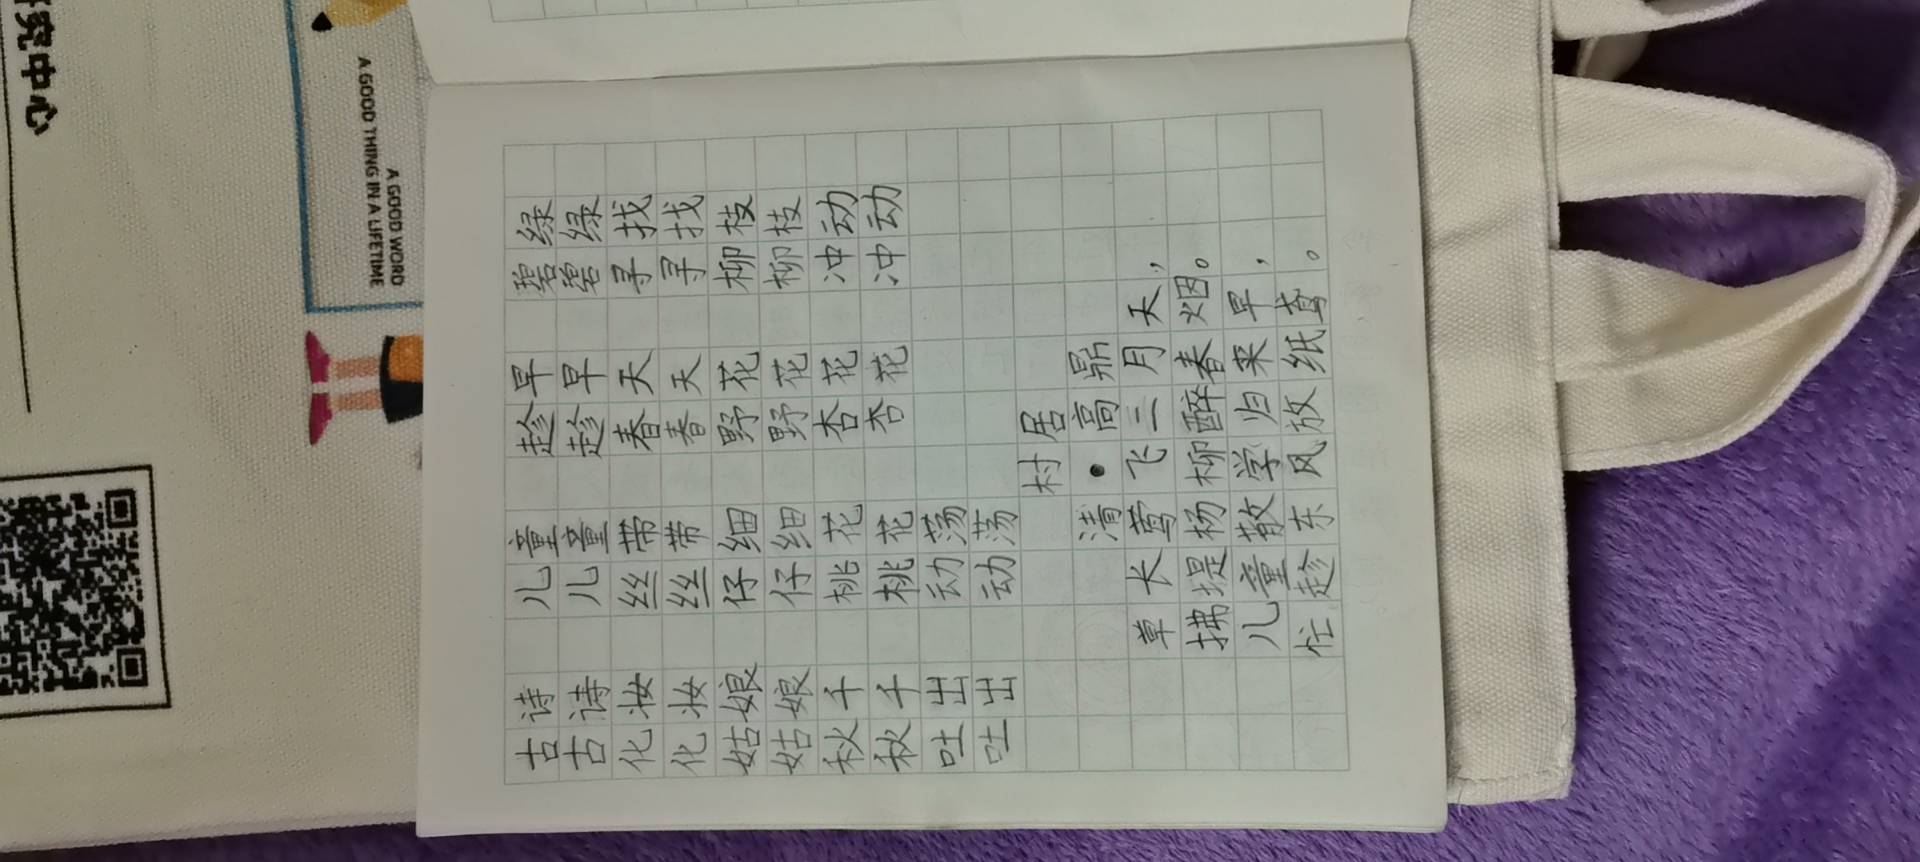 古诗 儿童 趁早 碧绿
古诗 儿童 趁早 碧绿
化妆 丝带 春天 寻找
化妆 丝带 春天 寻找
姑娘 仔细 野花 柳枝
姑娘 仔细 野花 柳枝
秋千 桃花 杏花 冲动
秋千 桃花 杏花 冲动
吐出 动荡
吐出 动荡
村居
清•高鼎
草长莺飞二月天，
拂堤杨柳醉春烟。
儿童散学归来早，
忙趁东风放纸鸢。
究中心
A GOOD WORD
A GOOD THING IN A LIFETIME